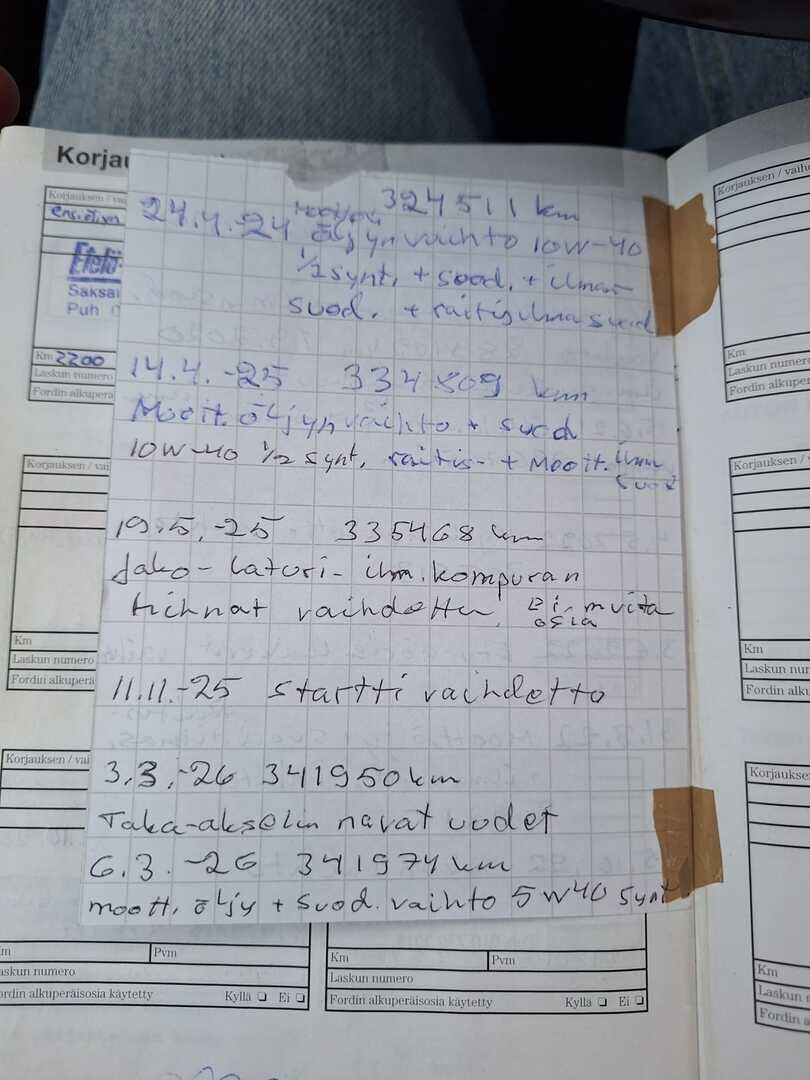 Korjau
Korjauksen / vai
ensiöljyn
Saksal
Puh
Km 2200
Laskun numero
Fordin alkuperä
324511 km
24.4.-24 moottori
öljyn vaihto 10W-40
1/2 synt. + suod. + ilman
suod. + raitisilmasuod
14.4.-25 334809 km
Moott. öljyn vaihto + suod
10W-40 1/2 synt, raitis- + moott. ilm
suod
19.5.-25 335468 km
Jako- laturi- ilm. kompuran
hihnat vaihdettu, Ei muita
osia
11.11.-25 startti vaihdetto
3.3.-26 341950 km
Taka-akselin navat uudet
6.3.-26 341974 km
moott. öljy + suod. vaihto 5W40 synt.
Korjauksen / vai
Km
Laskun numero
Fordin alkuperä
Korjauksen / vai
m
Pvm
askun numero
ordin alkuperäisosia käytetty Kyllä Ei
Km
Pvm
Laskun numero
Fordin alkuperäisosia käytetty Kyllä Ei
Korjauksen / vaihe
Km
Laskun numero
Fordin alkupera
Korjauksen / vaihe
Km
Laskun nur
Fordin alku
Korjaukse
Km
Laskun n
Fordin a